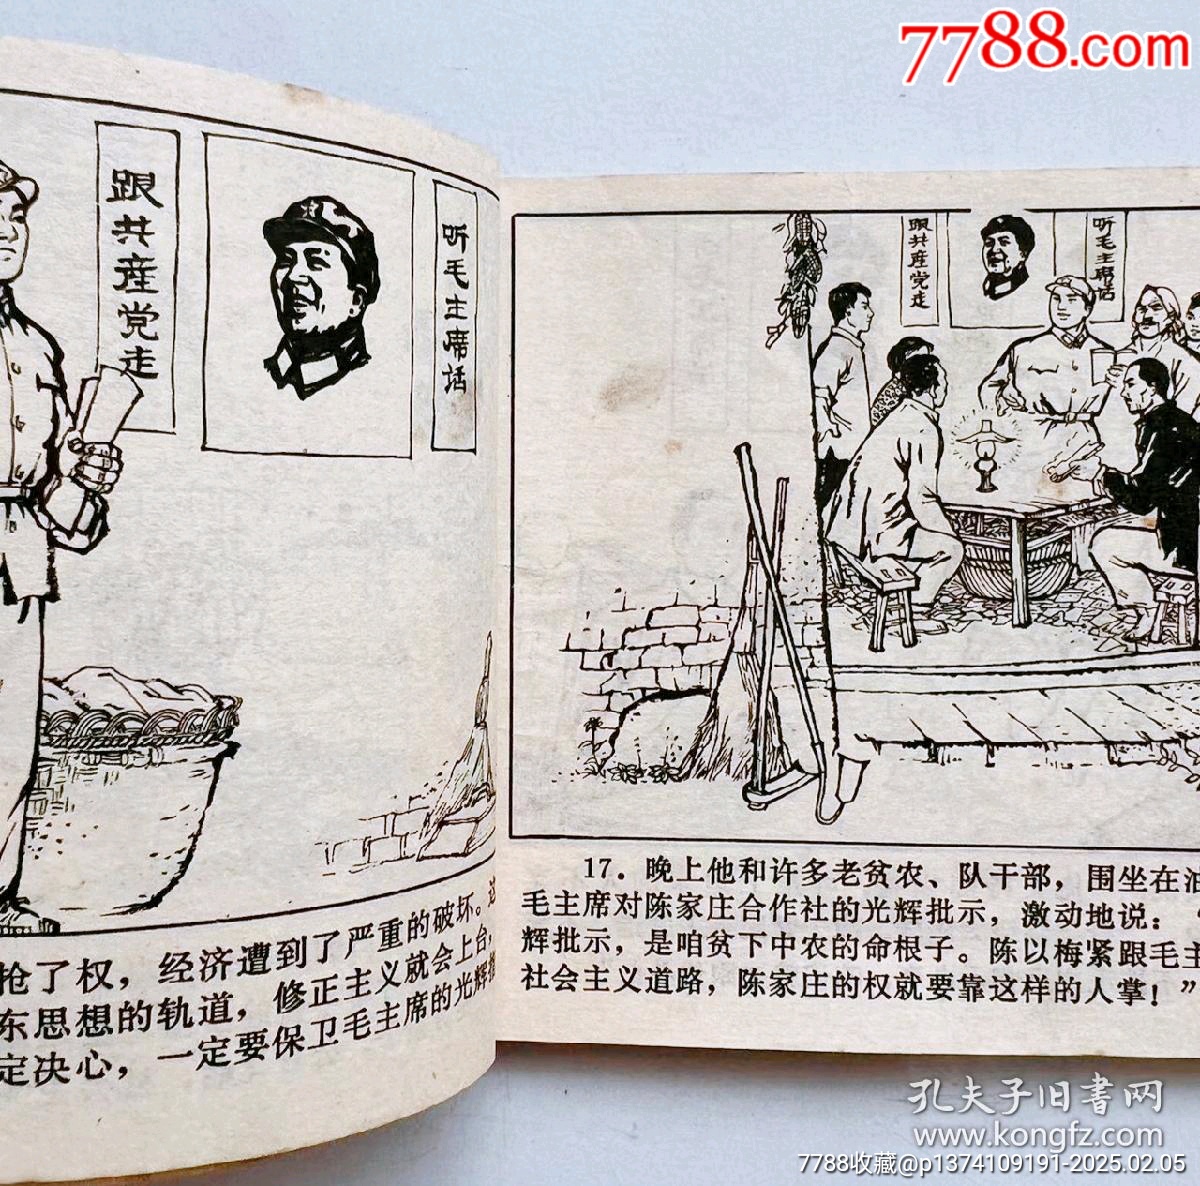 7788.com
跟共産党走
听毛主席话
抢了权，经济遭到了严重的破坏。这
东思想的轨道，修正主义就会上台，
定决心，一定要保卫毛主席的光辉批
跟共産党走
听毛主席话
17．晚上他和许多老贫农、队干部，围坐在油
毛主席对陈家庄合作社的光辉批示，激动地说：
辉批示，是咱贫下中农的命根子。陈以梅紧跟毛主
社会主义道路，陈家庄的权就要靠这样的人掌！”
孔夫子旧书网
www.kongfz.com
7788收藏@p1374109191-2025.02.05